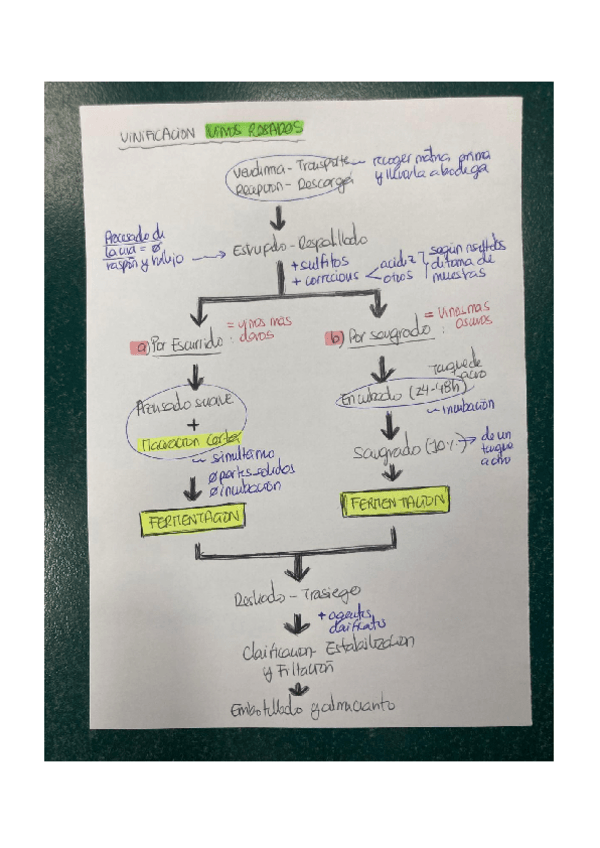 VINIFICACION VINOS ROSADOS
Vendimia - Transporte
Recepcion - Descarga
recoger matria prima
y llevarla a bodega
Prensado de
la uva = Ø
raspón y hollejo
Estrujado - Despalillado
+ sulfitos
+ correcciones
acidez
otros
según resultados
di toma de
muestras
a) Por Escurrido
= vinos más
claros
b) Por sangrado
= Vinos mas
oscuros
Prensado suave
+
Maceracion corta
simultaneo
Ø partes solidos
Ø incubación
tanque de
acero
Encubado (24-48h)
incubación
Sangrado (10%)
de un
tanque
a otro
FERMENTACION
FERMENTACION
Desliado - Trasiego
+ agentes
clarificantes
Clarificacion - Estabilización
y Filtación
Embotellado y almacianto